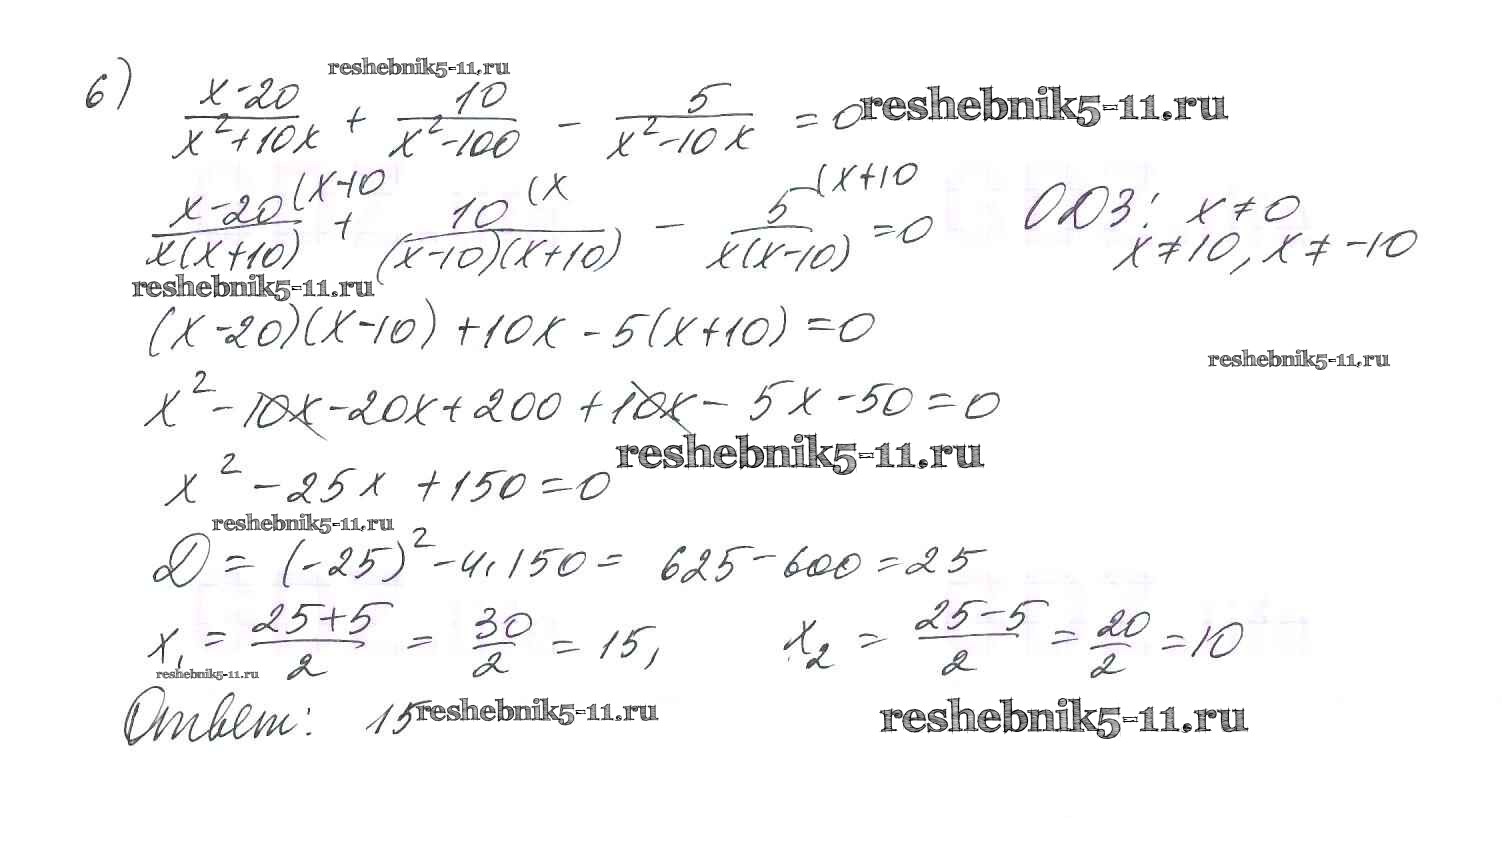 reshebnik5-11.ru
6) (x-20)/(x²+10x) + 10/(x²-100) - 5/(x²-10x) = 0 reshebnik5-11.ru
x-20 (x-10 / x(x+10) + 10 (x / (x-10)(x+10) - 5 (x+10 / x(x-10) = 0 ОДЗ: x≠0
x≠10, x≠-10
reshebnik5-11.ru
(x-20)(x-10)+10x-5(x+10)=0
reshebnik5-11.ru
x²-10x-20x+200+10x-5x-50=0
reshebnik5-11.ru
x²-25x+150=0
reshebnik5-11.ru
D=(-25)²-4·150= 625-600=25
x₁ = (25+5)/2 = 30/2 = 15, x₂ = (25-5)/2 = 20/2 = 10
reshebnik5-11.ru
Ответ: 15 reshebnik5-11.ru reshebnik5-11.ru